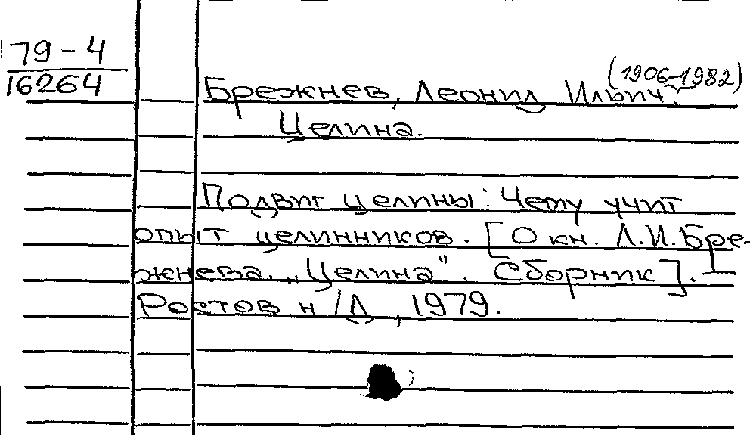 79-4
16264
(1906-1982)
Брежнев, Леонид Ильич.
Целина.
Подвиг целины: Чему учит
опыт целинников. [О кн. Л.И.Бре-
жнева „Целина". Сборник].
Ростов н/Д, 1979.